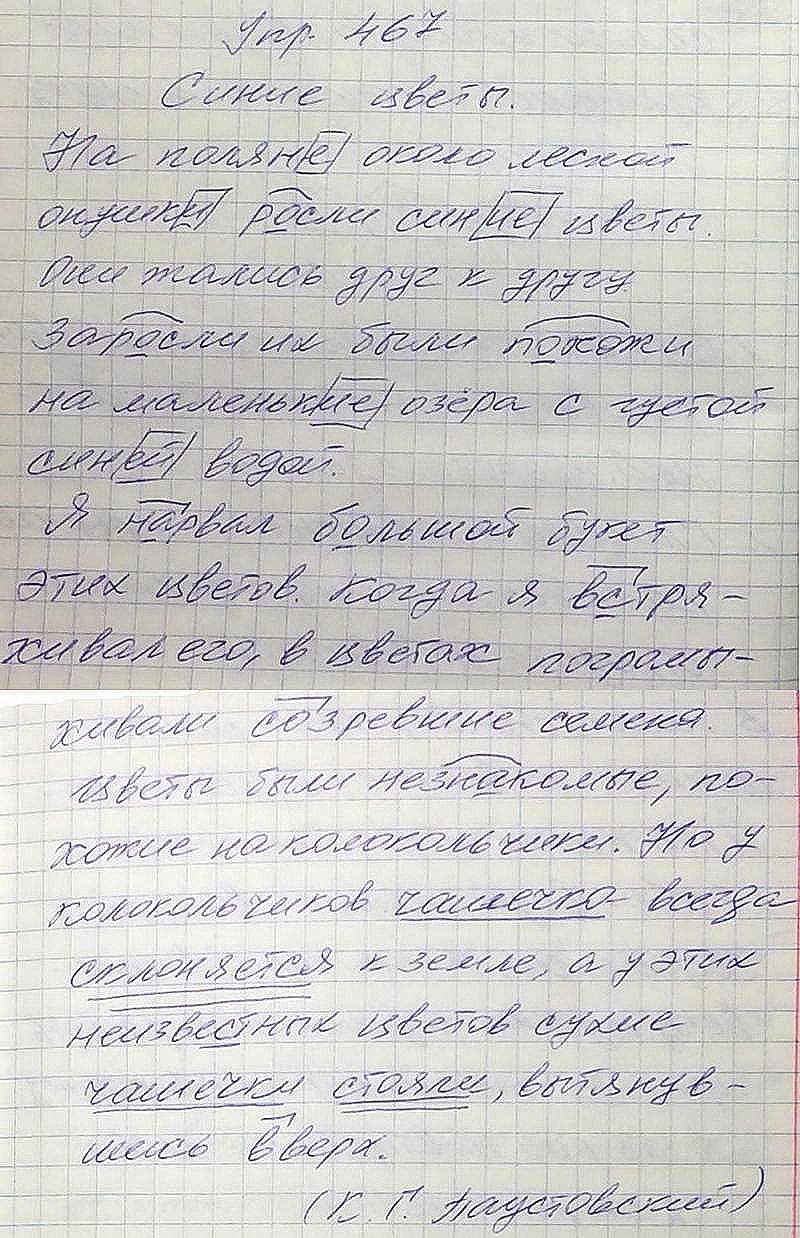 Упр. 467
Синие цветы.
На поляне около лесной
опушки росли синие цветы.
Они жались друг к другу.
Заросли их были похожи
на маленькие озёра с густой
синей водой.
Я нарвал большой букет
этих цветов. Когда я встря-
хивал его, в цветах погромы-
хивали созревшие семена.
Цветы были незнакомые, по-
хожие на колокольчики. Но у
колокольчиков чашечка всегда
склоняется к земле, а у этих
неизвестных цветов сухие
чашечки стояли, вытянув-
шись вверх.
(К. Г. Паустовский)